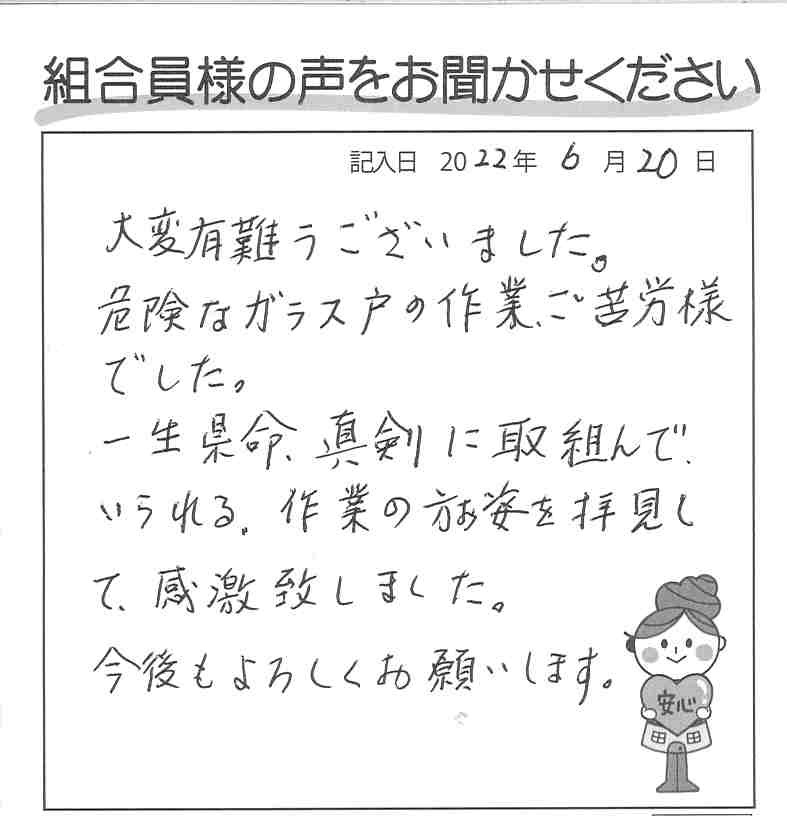 組合員様の声をお聞かせください
記入日 2022年 6月20日
大変有難うございました。
危険なガラス戸の作業、ご苦労様
でした。
一生県命、真剣に取組んで、
いられる、作業の方お姿を拝見し
て、感激致しました。
今後もよろしくお願いします。
安心